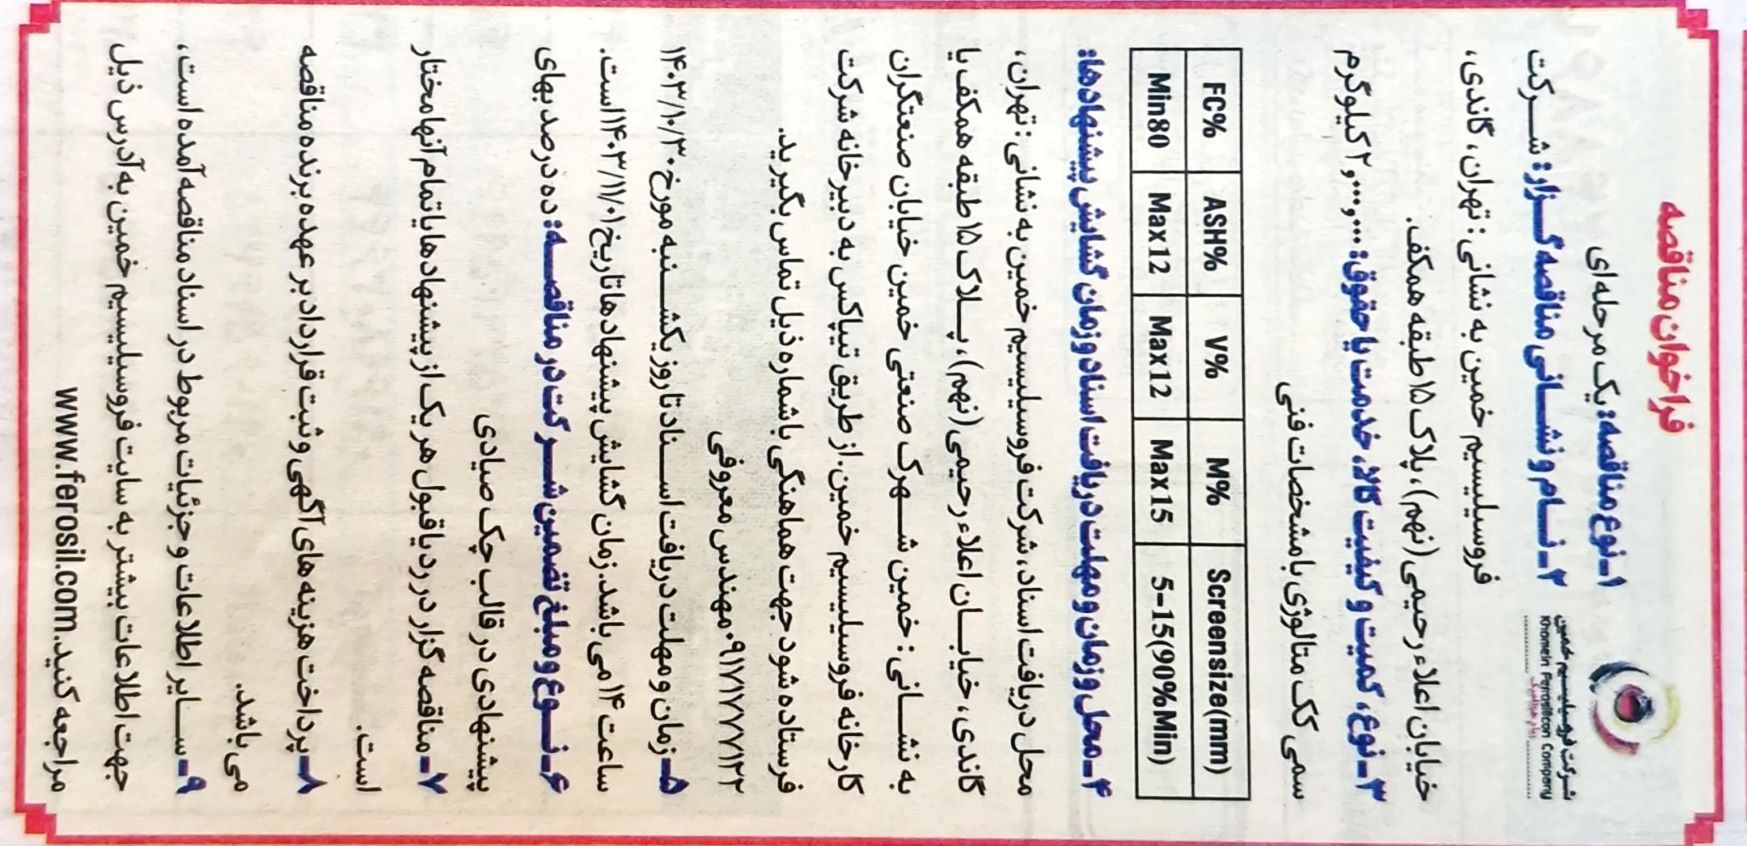 فراخوان مناقصه
شرکت فروسیلیسیم خمین
Khomein Ferrosilicon Company
(سهامی خاص)
۱-نوع مناقصه: یک مرحله‌ای
۲-نام و نشانی مناقصه گزار: شرکت
فروسیلیسیم خمین به نشانی: تهران، گاندی،
خیابان اعلاء رحیمی (نهم)، پلاک ۱۵ طبقه همکف.
۳-نوع، کمیت و کیفیت کالا، خدمت یا حقوق: ۲,۰۰۰,۰۰۰ کیلوگرم
سمی کک متالوژی با مشخصات فنی
FC% ASH% V% M% Screensize(mm)
Min80 Max12 Max12 Max15 5-15(90%Min)
۴-محل و زمان و مهلت دریافت اسناد و زمان گشایش پیشنهادها:
محل دریافت اسناد، شرکت فروسیلیسیم خمین به نشانی: تهران،
گاندی، خیابان اعلاء رحیمی (نهم)، پلاک ۱۵ طبقه همکف یا
به نشانی: خمین شهرک صنعتی خمین خیابان صنعتگران
کارخانه فروسیلیسیم خمین. از طریق تیپاکس به دبیرخانه شرکت
فرستاده شود جهت هماهنگی با شماره ذیل تماس بگیرید.
۰۹۱۷۱۷۷۷۱۲۲ مهندس معروفی
۵-زمان و مهلت دریافت اسناد تا روز یکشنبه مورخ ۱۴۰۳/۱۰/۳۰
ساعت ۱۴ می باشد. زمان گشایش پیشنهادها تاریخ ۱۴۰۳/۱۱/۰۱ است.
۶-نوع و مبلغ تضمین شرکت در مناقصه: ده درصد بهای
پیشنهادی در قالب چک صیادی
۷-مناقصه گزار در رد یا قبول هر یک از پیشنهادها یا تمام آنها مختار
است.
۸-پرداخت هزینه های آگهی و ثبت قرارداد بر عهده برنده مناقصه
می باشد.
۹-سایر اطلاعات و جزئیات مربوط در اسناد مناقصه آمده است،
جهت اطلاعات بیشتر به سایت فروسیلیسیم خمین به آدرس ذیل
مراجعه کنید. www.ferosil.com